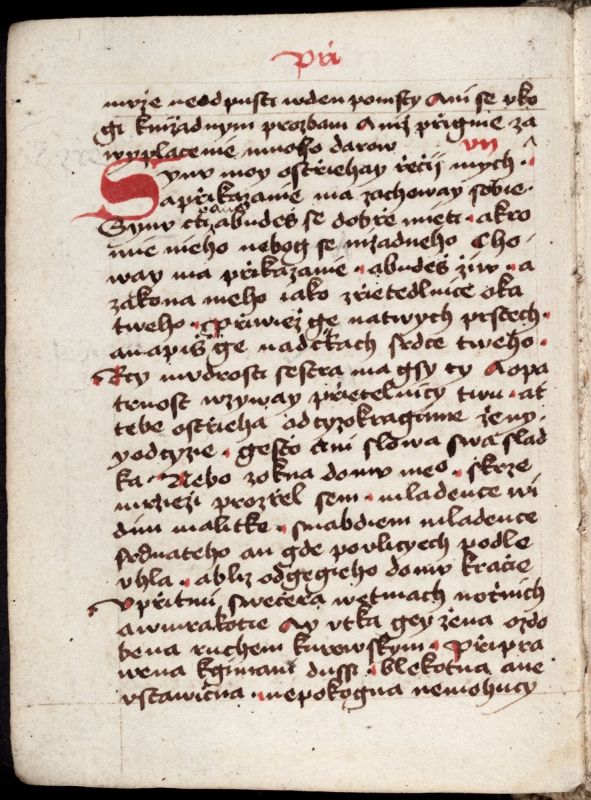 Při
muže neodpusti wden pomsty Ani se vko
gi knižadnym prozbam Aniž přigme za
wyplacenie mnoho darow VII
Synu moy ostřiehay řečij mych ·
a přikazanie ma zachoway sobie ·
Synu cti pana abudeš se dobře mieti · akro
mie nieho neboy se nižadneho Cho-
way ma přikazanie · abudeš žiw · a
zakona meho iako zřietedlnice oka
tweho · Přiwiež ge natwych prstech ·
anapiš ge nadckach srdce tweho ·
Rcy mudrosti sestra ma gsy ty Aopa
trnost wzyway přietelnicy twu · at
tebe ostřieha odcyzokraginie ženy ·
yodcyzie · gesto čini slowa swa slad
ka · Nebo zokna domu meo · skrze
mřieži prozřel sem · mladence wi
diw malitke · snabdiem mladence
srdnateho an gde povlicyech podle
vhla · abliz odgegieho domu kračie
Vpřitmi swečera wetmach nočnich
awmrakotie Ay vtka gey žena ozdo
bena ruchem kurewskym · Připra
wena kgimani dussi · blekotna ane
vstawična · nepokogna nemohucy